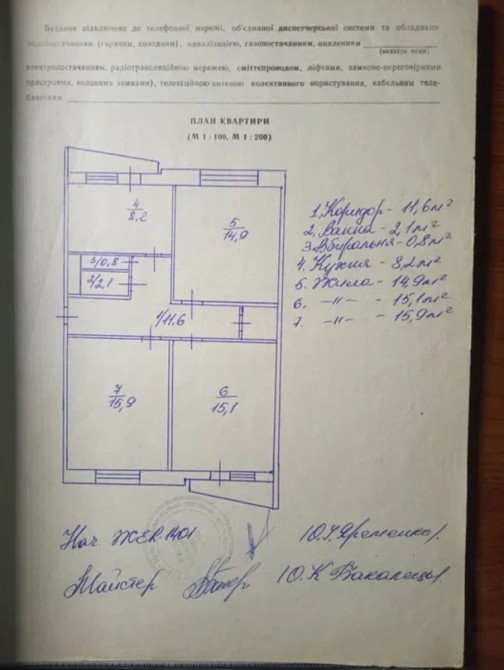 Будинок підключено до телефонної мережі, об'єднаної диспетчерської системи та обладнано
водопостачанням (гарячим, холодним), каналізацією, газопостачанням, опаленням
(вказати яким)
електропостачанням, радіотрансляційною мережею, сміттєпроводом, ліфтами, замково-переговорними
пристроями, кодовими замками), телевізійною антеною колективного користування, кабельним теле-
баченням
ПЛАН КВАРТИРИ
(М 1 : 100, М 1 : 200)
4
8,2
5
14,9
3/0,8
2/2,1
1/11.6
7
15,9
6
15,1
1. Коридор - 11,6 м²
2. Ванна - 2,1 м²
3. Вбиральня - 0,8 м²
4. Кухня - 8,2 м²
5. Жила - 14,9 м²
6. -"- - 15,1 м²
7. -"- - 15,9 м²
Нач. ЖЕК 1401 Ю.
Майстер О.К